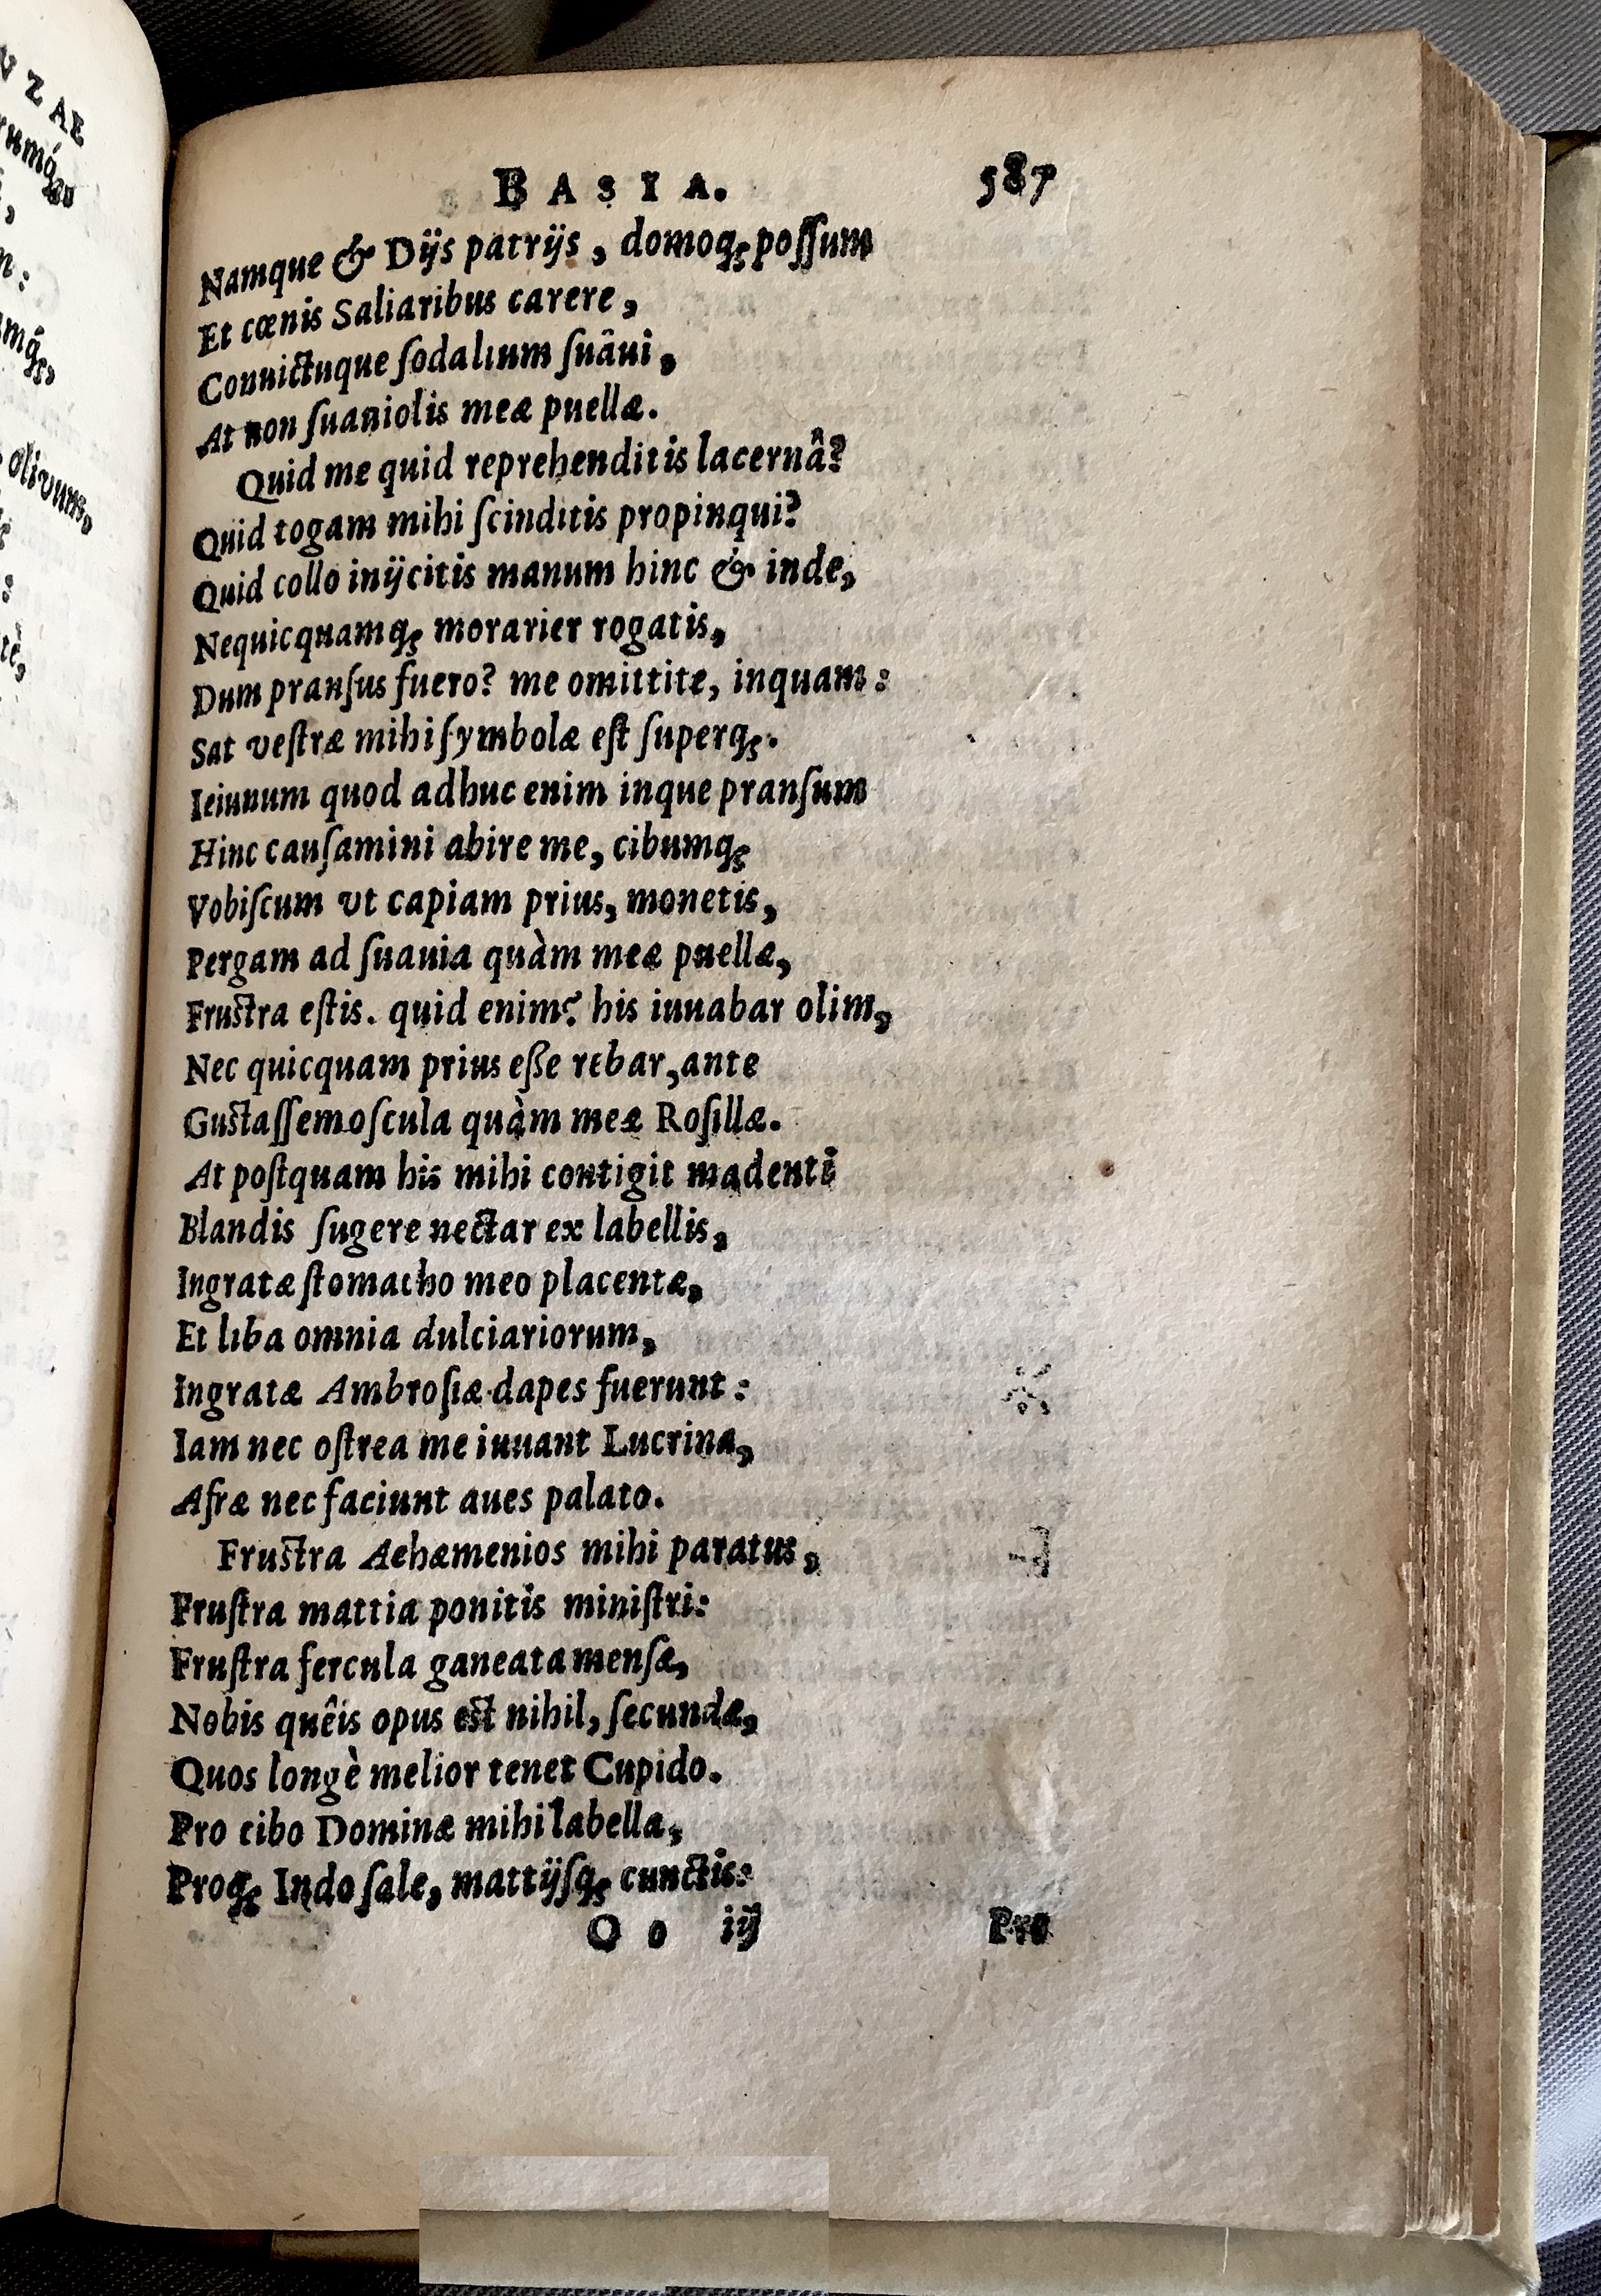 V Z AE
BASIA. 587
Namque & Dijs patrijs, domoq; possum
Et cœnis Saliaribus carere,
Conuictuque sodalium suâui,
At non suauiolis meæ puellæ.
Quid me quid reprehenditis lacernâ?
Quid togam mihi scinditis propinqui?
Quid collo inijcitis manum hinc & inde,
Nequicquamq; morarier rogatis,
Dum pransus fuero? me omittite, inquam:
Sat vestræ mihi symbolæ est superq;.
Ieiunum quod adhuc enim inque pransum
Hinc causamini abire me, cibumq;
Vobiscum vt capiam prius, monetis,
Pergam ad suauia quàm meæ puellæ,
Frustra estis. quid enim? his iuuabar olim,
Nec quicquam prius esse rebar, ante
Gustassem oscula quàm meæ Rosillæ.
At postquam his mihi contigit madenti
Blandis sugere nectar ex labellis,
Ingratæ stomacho meo placentæ,
Et liba omnia dulciariorum,
Ingratæ Ambrosiæ dapes fuerunt:
Iam nec ostrea me iuuant Lucrina,
Afræ nec faciunt aues palato.
Frustra Aehæmenios mihi paratus,
Frustra mattia ponitis ministri:
Frustra fercula ganeata mensæ,
Nobis quêis opus est nihil, secundæ,
Quos longè melior tenet Cupido.
Pro cibo Dominæ mihi labella,
Proq; Indo sale, mattijsq; cunctis:
O o iij Pro